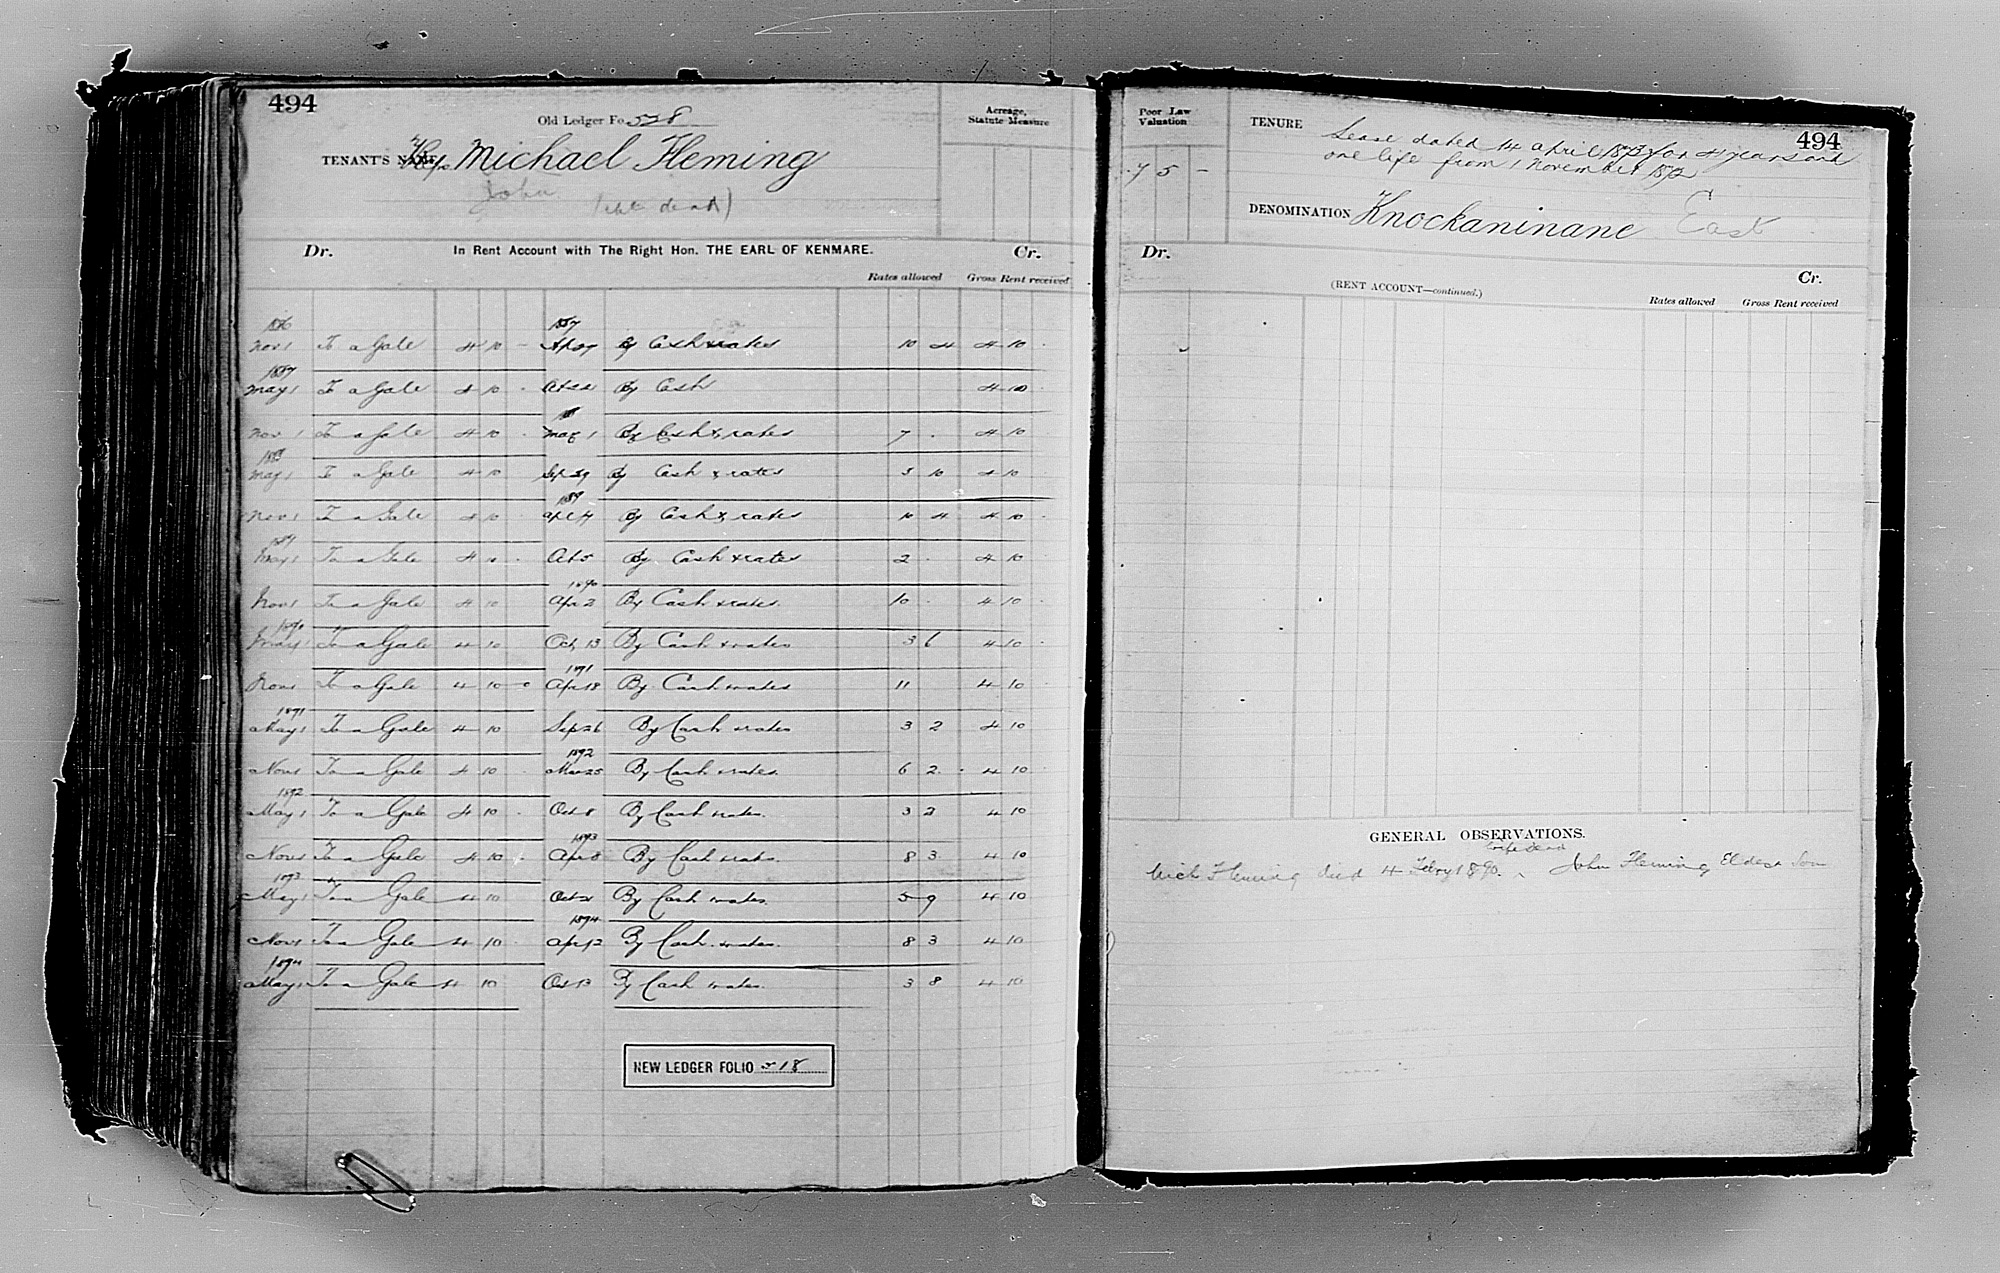 494
Old Ledger Fo. 528
TENANT'S NAME Reps Michael Fleming
John (wife dead)
Acreage, Statute Measure
Dr. In Rent Account with The Right Hon. THE EARL OF KENMARE. Cr.
Rates allowed Gross Rent received
1886 1887
Nov 1 To a Gale 4 10 - Ap 27 By Cash & rates 10 4 4 10
1887
May 1 To a Gale 4 10 - Oct 22 By Cash 4 10
1888
Nov 1 To a Gale 4 10 - May 1 By Cash & rates 7 - 4 10
1888
May 1 To a Gale 4 10 Sep 29 By Cash & rates 3 10 4 10
1889
Nov 1 To a Gale 4 10 Apl 4 By Cash & rates 10 4 4 10
1889
May 1 To a Gale 4 10 - Oct 5 By Cash & rates 2 - 4 10
1890
Nov 1 To a Gale 4 10 Apr 2 By Cash & rates 10 - 4 10
1890
May 1 To a Gale 4 10 Oct 13 By Cash & rates 3 6 4 10
1891
Nov 1 To a Gale 4 10 - Apr 18 By Cash & rates 11 4 10
1891
May 1 To a Gale 4 10 Sep 26 By Cash & rates 3 2 4 10
1892
Nov 1 To a Gale 4 10 Mar 25 By Cash & rates 6 2 4 10
1892
May 1 To a Gale 4 10 Oct 8 By Cash & rates. 3 2 4 10
1893
Nov 1 To a Gale 4 10 Apr 8 By Cash & rates 8 3 4 10
1893
May 1 To a Gale 4 10 Oct 21 By Cash & rates. 5 9 4 10
1894
Nov 1 To a Gale 4 10 Apr 12 By Cash & rates. 8 3 4 10
1894
May 1 To a Gale 4 10 Oct 13 By Cash & rates. 3 8 4 10
NEW LEDGER FOLIO 518
Poor Law Valuation
7 5 -
494
TENURE Lease dated 14 April 1873 for 41 years and
one life from 1 November 1872
DENOMINATION Knockaninane East
Dr. Cr.
(RENT ACCOUNT—continued.)
Rates allowed Gross Rent received
GENERAL OBSERVATIONS.
wife dead
Mich Fleming died 4 Febry 1890. John Fleming Eldest Son